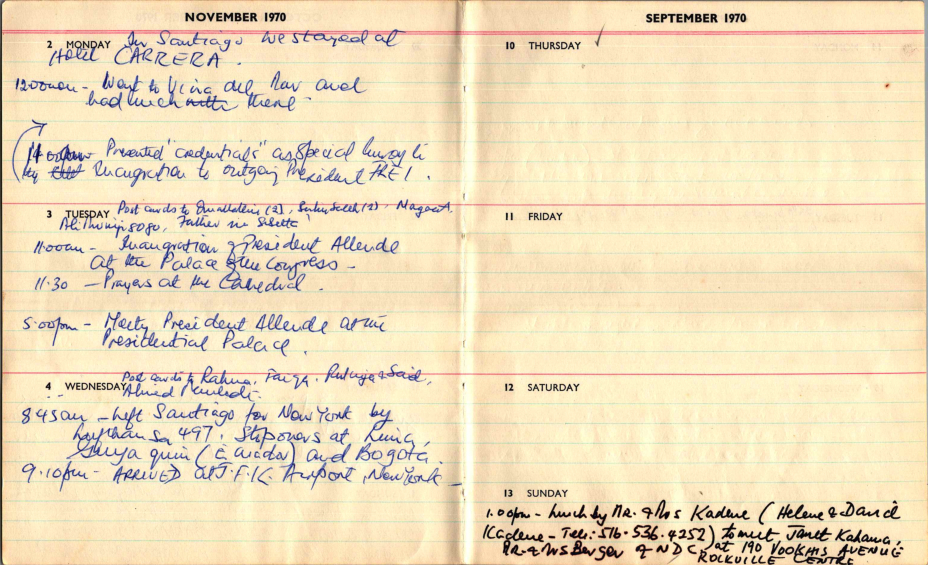 NOVEMBER 1970
2 MONDAY In Santiago we stayed at
Hotel CARRERA.
12.00noon - Went to Vina del Mar and
had lunch there -
Presented "credentials" as Special Envoy to
Inaugration to outgoing President FREI.
3 TUESDAY Post cards to (2), (2), Magaret,
Father
11.00am - Inaugration of President Allende
at the Palace of the Congress -
11.30 - Prayers at the Cathedral.
5.00pm - Meety President Allende at the
Presidential Palace.
4 WEDNESDAY Post cards to Rahma, & Said,
Ahmed
8.45am - Left Santiago for New York by
497. Stopovers at Lima,
and Bogota.
9.10pm - ARRIVED at J.F.K. Airport, New York -
SEPTEMBER 1970
10 THURSDAY
11 FRIDAY
12 SATURDAY
13 SUNDAY
1.00pm - Lunch by MR. & Mrs Kadene (Helene & David
Kadene - Tel: 516-536-4252) to meet Janet Kahama,
MR. & MRS Berger of NDC, at 190 VOORHIS AVENUE
ROCKVILLE CENTRE